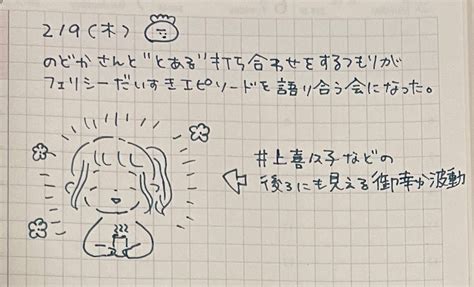 2/9(木)
のどかさんと"とある"打ち合わせをするつもりが
フェリシーだいすきエピソードを語り合う会になった。
井上喜久子などの
後ろにも見える御幸が波動